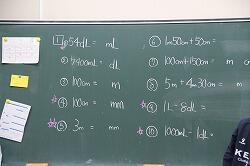 1 ① 54dL = mL
② 7400mL = dL
③ 100cm = m
☆④ 100cm = mm
☆⑤ 3m = mm
⑥ 1m50cm+50cm=
⑦ 100cm+150cm= m
⑧ 5m+4m30cm= m
⑨ 1L-8dL=
☆⑩ 1000mL-1dL=